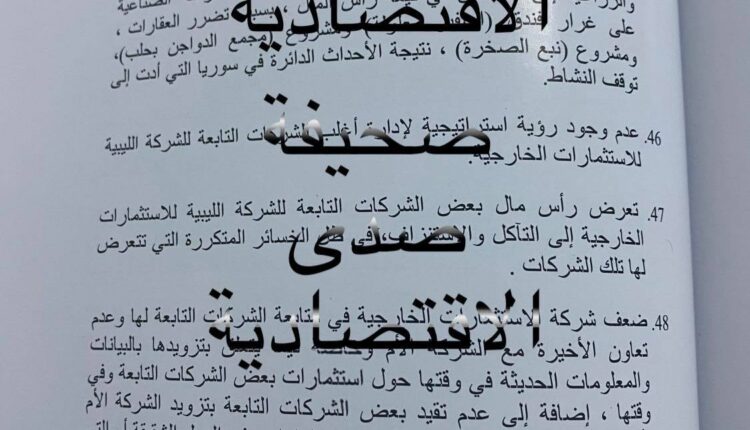 على غرار فندق
ومشروع (نبع الصخرة) ، نتيجة الأحداث الدائرة في سوريا التي أدت إلى
توقف النشاط.
46. عدم وجود رؤية استراتيجية لإدارة أغلب الشركات التابعة للشركة الليبية
للاستثمارات الخارجية.
47. تعرض رأس مال بعض الشركات التابعة للشركة الليبية للاستثمارات
الخارجية إلى التآكل والاستنزاف، في ظل الخسائر المتكررة التي تتعرض
لها تلك الشركات .
48. ضعف شركة الاستثمارات الخارجية في متابعة الشركات التابعة لها وعدم
تعاون الأخيرة مع الشركة الأم وخاصة فيما يتعلق بتزويدها بالبيانات
والمعلومات الحديثة في وقتها حول استثمارات بعض الشركات التابعة وفي
وقتها ، إضافة إلى عدم تقيد بعض الشركات التابعة بتزويد الشركة الأم
الاقتصادية
صحيفة
صدى
الاقتصادية